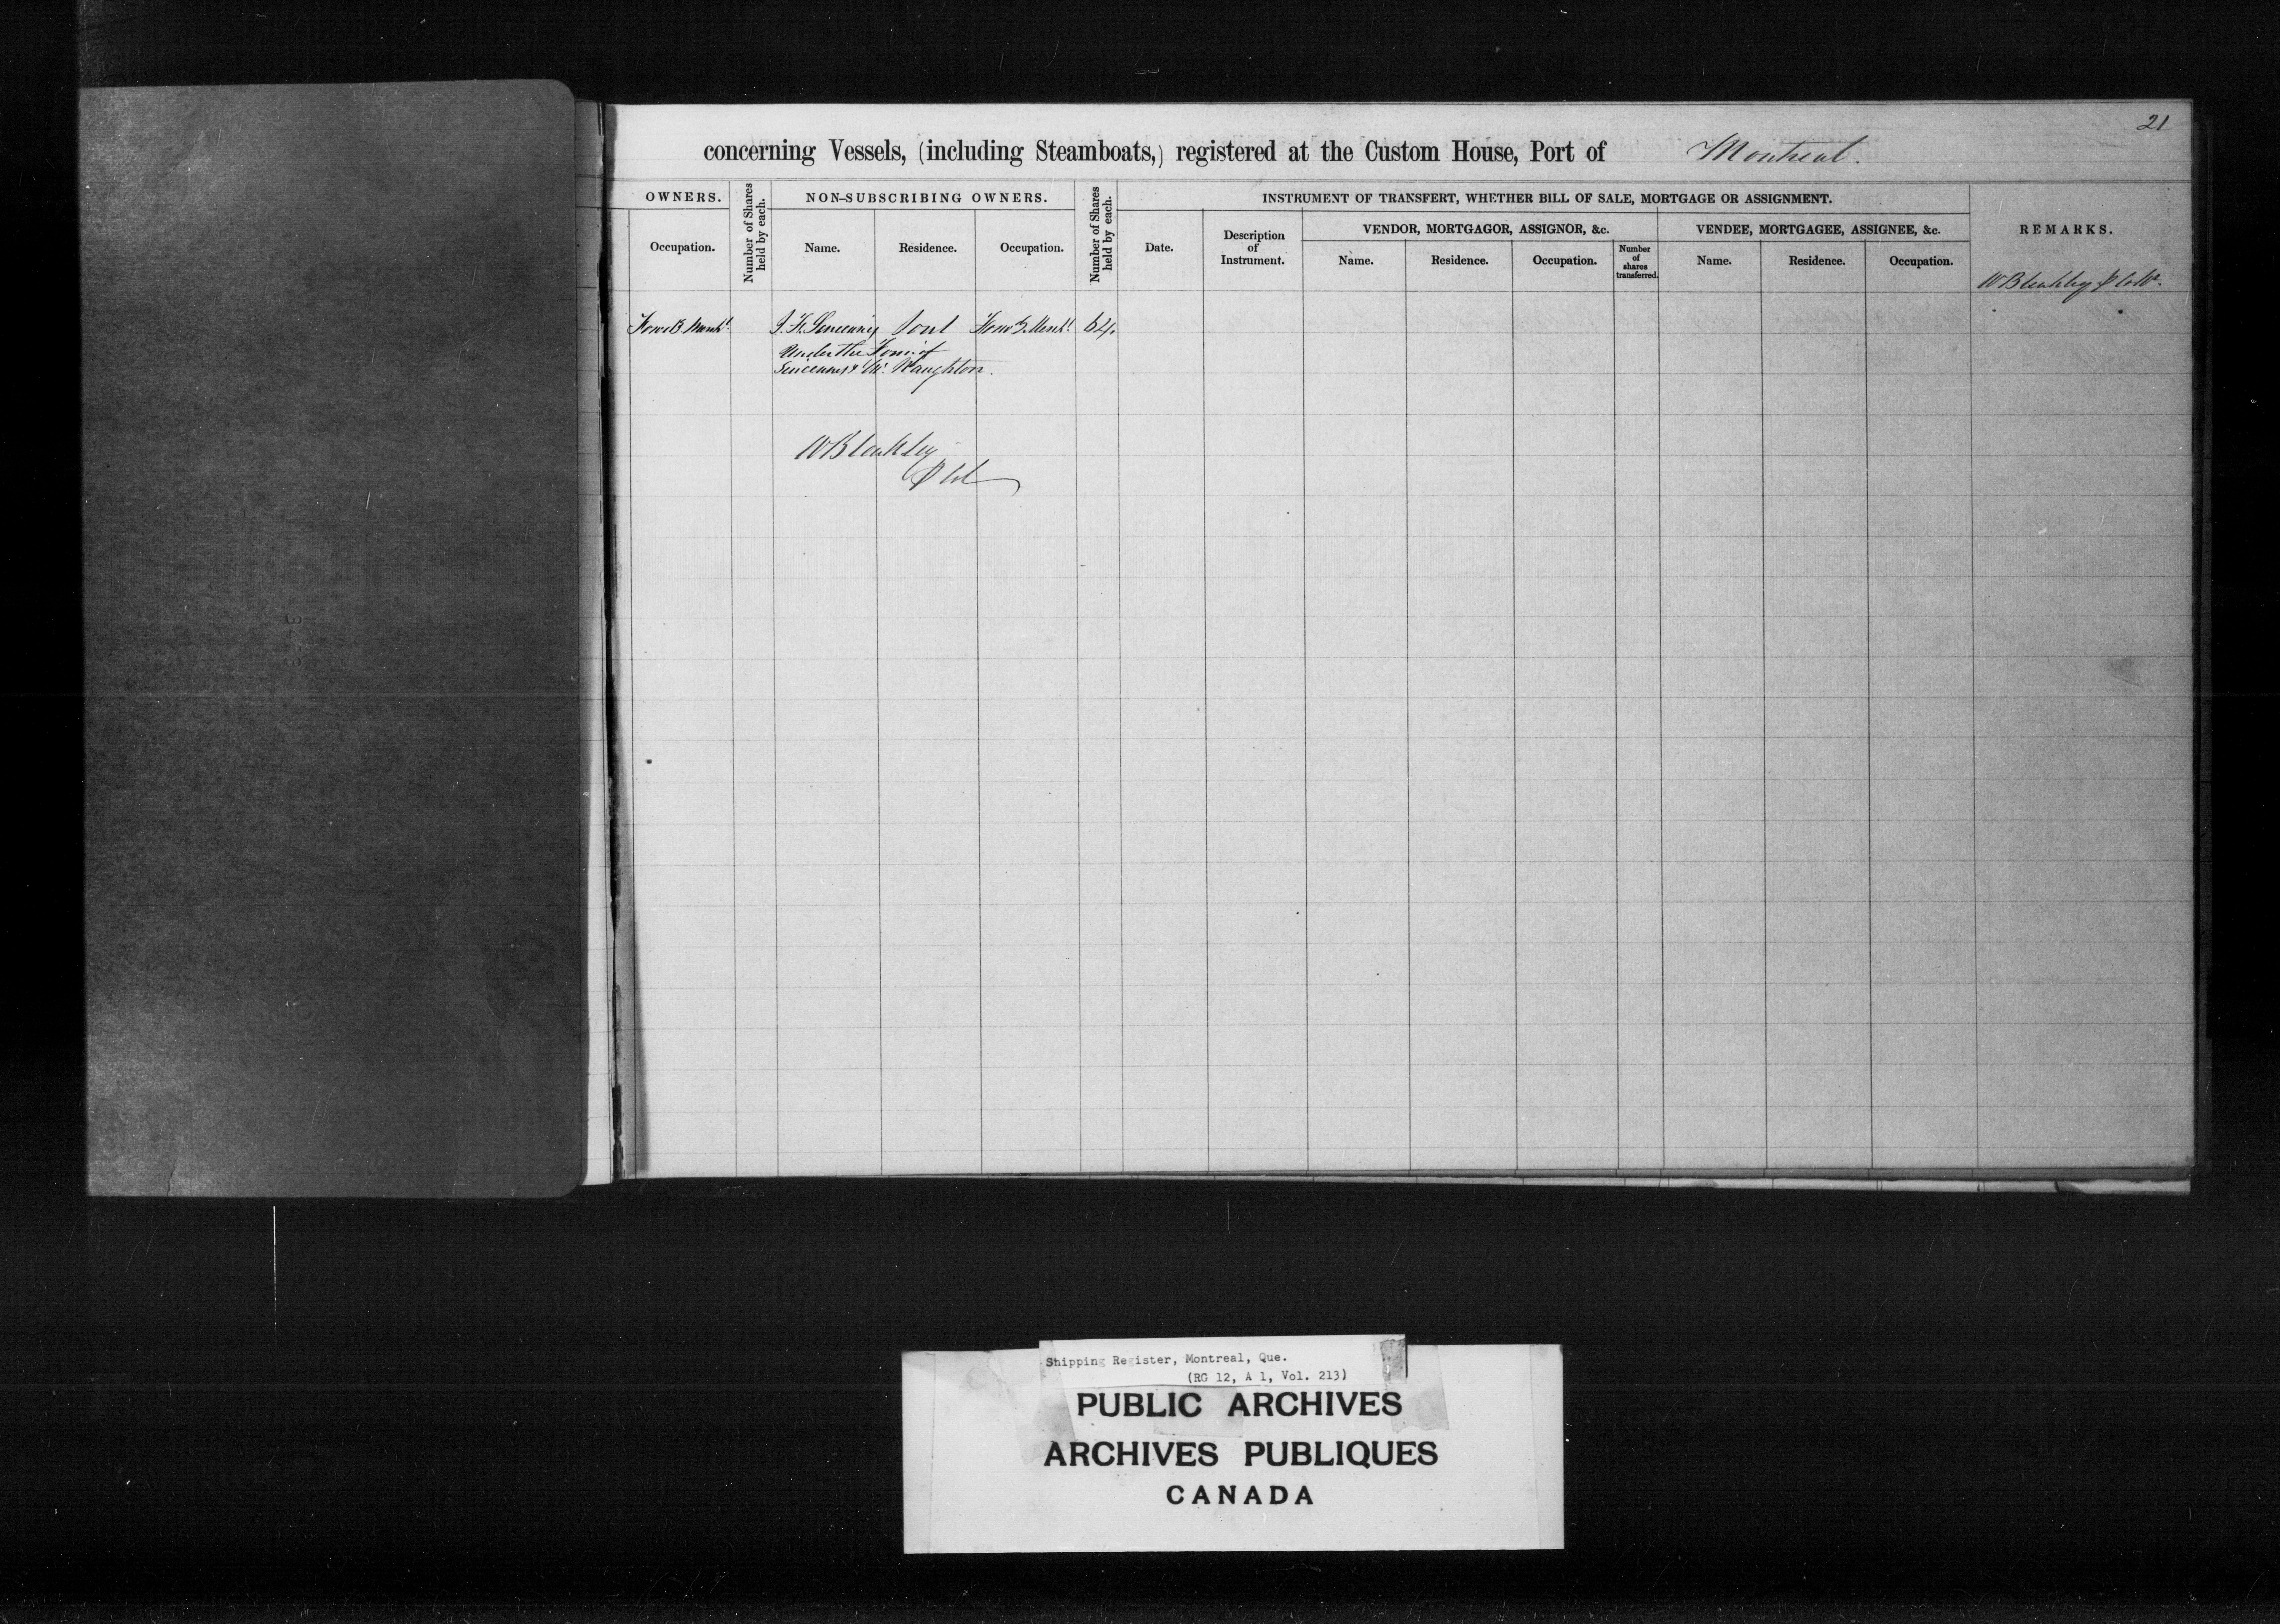 21
concerning Vessels, (including Steamboats,) registered at the Custom House, Port of Montreal.
OWNERS.
Number of Shares held by each.
NON-SUBSCRIBING OWNERS.
Number of Shares held by each.
INSTRUMENT OF TRANSFERT, WHETHER BILL OF SALE, MORTGAGE OR ASSIGNMENT.
REMARKS.
Occupation.
Name.
Residence.
Occupation.
Date.
Description
of
Instrument.
VENDOR, MORTGAGOR, ASSIGNOR, &c.
VENDEE, MORTGAGEE, ASSIGNEE, &c.
Name.
Residence.
Occupation.
Number
of
shares
transferred.
Name.
Residence.
Occupation.
W Bleakley
Forw. & Mercht.
Sorel
Forw. & Mercht.
64.
Under the Firm of
Sincennes & Mc. Naughton.
W Bleakley
Shipping Register, Montreal, Que.
(RG 12, A 1, Vol. 213)
PUBLIC ARCHIVES
ARCHIVES PUBLIQUES
CANADA